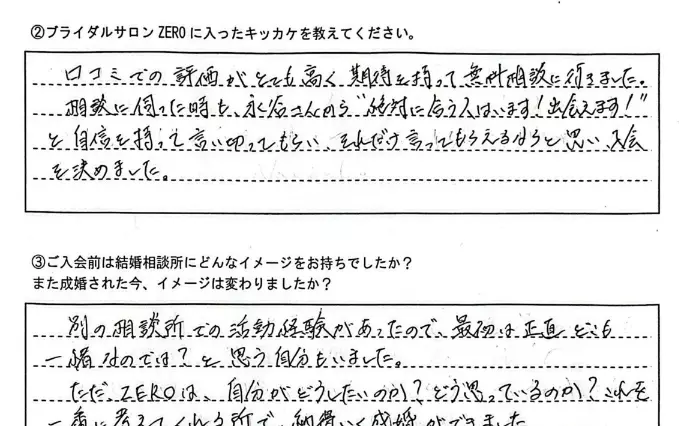 ②ブライダルサロン ZERO に入ったキッカケを教えてください。
口コミでの評価がとても高く期待を持って無料相談に行きました。
相談に伺った時も、永谷さんから“絶対に合う人はいます!出会えます!”
と自信を持って言い切ってもらい、それだけ言ってもらえるならと思い、入会
を決めました。
③ご入会前は結婚相談所にどんなイメージをお持ちでしたか?
また成婚された今、イメージは変わりましたか?
別の相談所での活動経験があったので、最初は正直どこも
一緒なのでは?と思う自分もいました。
ただ、ZEROは、自分がどうしたいのか?どう思っているのか?これを
一番に考えてくれる所で、納得いく成婚ができました